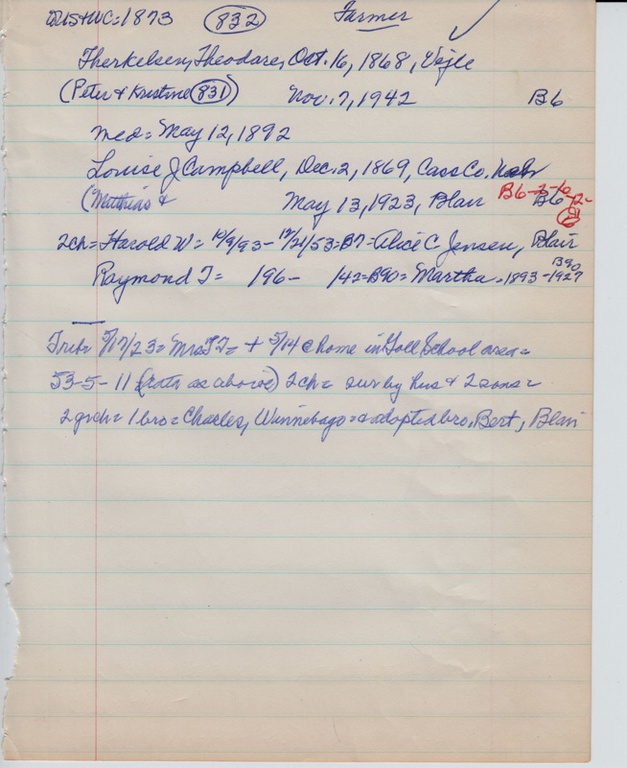 US+WC=1873 832 Farmer ✓
Therkelsen, Theodore, Oct. 16, 1868, Vejle
(Peter & Kristine 831) Nov. 7, 1942 B6
med= May 12, 1892
Louise J Campbell, Dec. 2, 1869, Cass Co. Nebr
(Matthias & May 13, 1923, Blair B6
2ch= Harold W= 10/9/93- 12/21/53=B7-Alice C Jensen, Blair
Raymond T= 196- /42=B90= Martha -1893-1927 B90
Trib= 5/17/23= Mrs T T= + 5/14 @ home in School area=
53-5-11 (data as above) 2ch= sur by hus & 2 sons=
2 grch= 1 bro= Charles, Winnebago= adopted bro, Bert, Blair